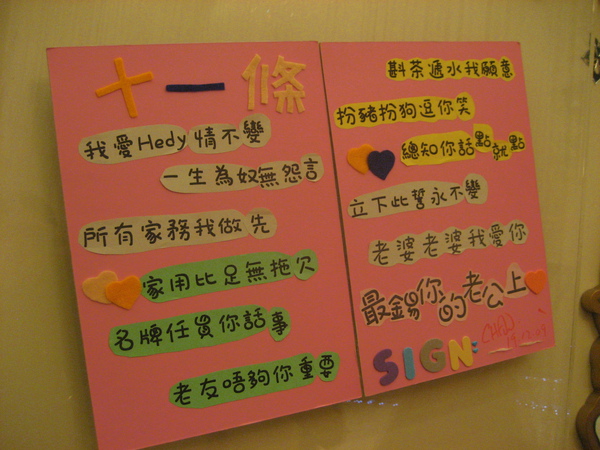 十一條
我愛Hedy情不變
一生為奴無怨言
所有家務我做先
家用比足無拖欠
名牌任買你話事
老友唔夠你重要
斟茶遞水我願意
扮豬扮狗逗你笑
總知你話點就點
立下此誓永不變
老婆老婆我愛你
最錫你的老公上
SIGN: